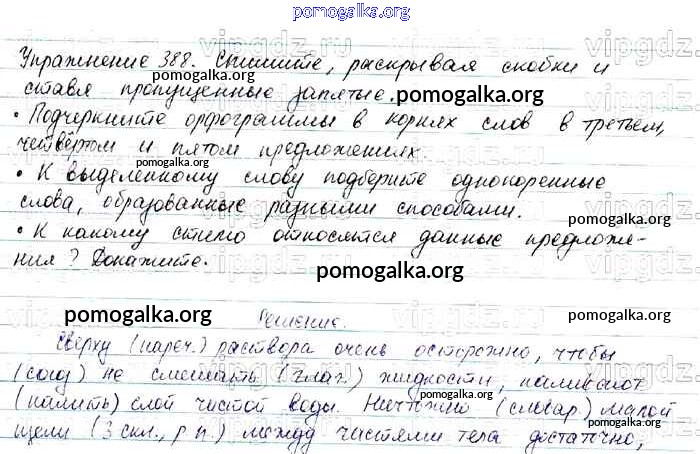 pomogalka.org
Упражнение 388. Спишите, раскрывая скобки и
pomogalka.org
ставя пропущенные запятые.
pomogalka.org
• Подчеркните орфограммы в корнях слов в третьем,
pomogalka.org
четвёртом и пятом предложениях.
pomogalka.org
• К выделенному слову подберите однокоренные
слова, образованные разными способами.
pomogalka.org
• К какому стилю относятся данные предложе-
ния? Докажите.
pomogalka.org
vipgdz.ru
Решение.
pomogalka.org
Сверху (нареч.) раствора очень осторожно, чтобы
(союз) не смешать (глаг.) жидкости, наливают
pomogalka.org
(налить) слой чистой воды. Ничтожно (словар.) малой
pomogalka.org
щели (3 скл., р.п.) между частями тела достаточно,